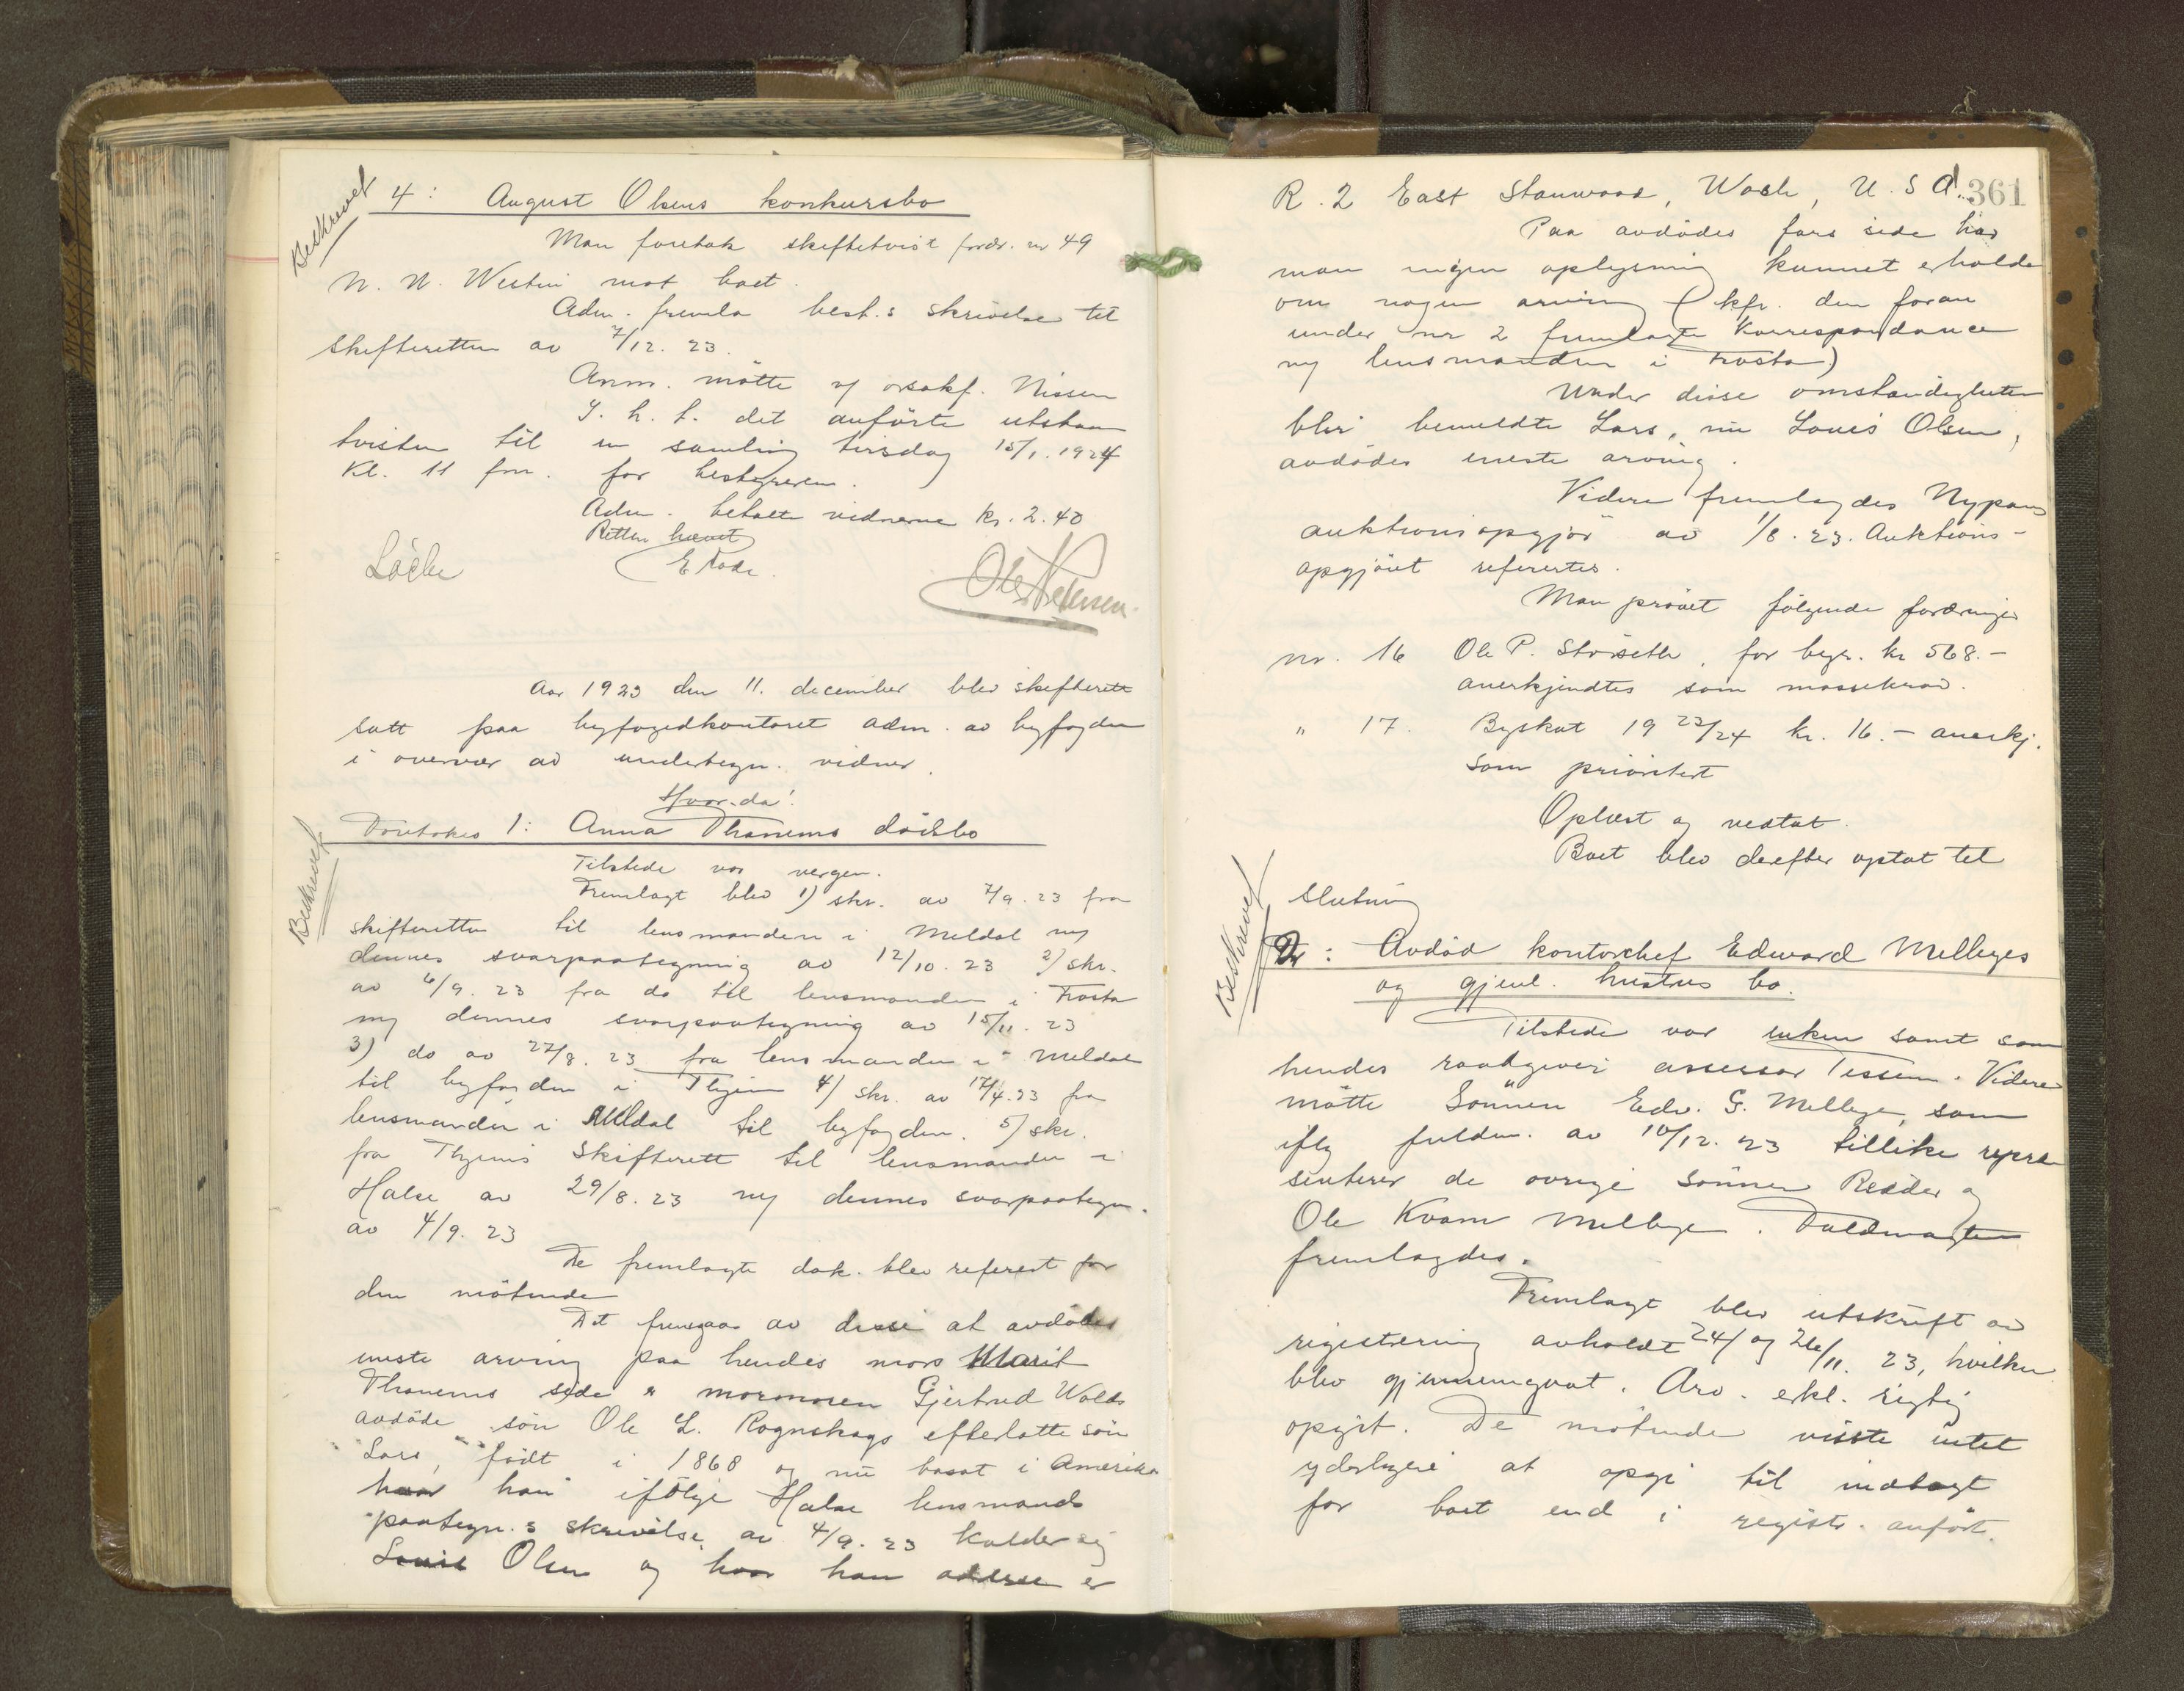 Beskrevet
4: August Olsens konkursbo
Man foretok skiftetvist fordr. nr 49
N. N. Westin mot boet.
Adm. fremla best.s skrivelse til
skifteretten av 7/12. 23.
Anm. møtte v/ orsakf. Nissen
I. h. t. det anförte utstaar
tvisten til en samling tirsdag 15/1. 1924
Kl. 11 fm. for bestyreren.
Adm. betalte vidnerne kr. 2.40
Retten hævet
E Rode.
Löchen
Ole Petersen.
Aar 1923 den 11. december blev skifterett
satt paa byfogedkontoret adm. av byfogden
i overvær av undertegn. vidner.
Hvor da:
Beskrevet
Foretokes 1: Anna Thonems dödsbo
Tilstede var vergen.
Fremlagt blev 1) skr. av 7/9. 23 fra
skifteretten til lensmanden i Meldal m/
dennes svarpaategning av 12/10. 23 2) skr.
av 6/9. 23 fra do til lensmanden i Frosta
m/ dennes svarpaategning av 15/11. 23
3) do av 27/8. 23 fra lensmanden i Meldal
til byfogden i Thjem 4) skr. av 17/4. 23 fra
lensmanden i Meldal til byfogden. 5) skr.
fra Thjems Skifterett til lensmanden i
Halse av 29/8. 23 m/ dennes svarpaategn.
av 4/9. 23
De fremlagte dok. blev referert for
den mötende
Det fremgaar av disse at avdödes
eneste arving paa hendes mors Marit
Thonems side er mormoren Gjertrud Wolds
avdöde sön Ole L. Rognskogs efterlatte sön
Lars, födt i 1868 og nu bosat i Amerika
hvor han ifölge Halse lensmands
paategn.s skrivelse av 4/9. 23 kalder sig
Louis Olsen og hvor han adresse er
361
R. 2 East Stanwood, Wash, U. S A.
Paa avdödes fars side har
man ingen oplysning kunnet erholde
om nogen arving (kfr. den foran
under nr 2 fremlagte korrespondance
m/ lensmanden i Frosta)
Under disse omstændigheter
blir bemeldte Lars, nu Louis Olsen,
avdödes eneste arving.
Videre fremlagdes Nypans
auktionsopgjör av 1/8. 23. Auktions-
opgjöret refertes.
Man prövet fölgende fordringer
nr. 16 Ole P. Störseth, for begr. kr 568.-
anerkjendtes som massekrav.
" 17. Byskat 19 23/24 kr. 16.- anerkj.
som prioritert
Oplæst og vedtat.
Boet blev derefter optat til
slutning
Beskrevet
2: Avdöd kontorchef Edward Mellbyes
og gjenl. hustrus bo.
Tilstede var enken samt som
hendes raadgiver assessor Tessem. Videre
mötte Sönnen Edv. G. Mellbye, som
iflg fuldm. av 10/12. 23 tillike repræ
senterer de övrige sönner Reidar og
Ole Kvam Mellbye. Fuldmagten
fremlagdes.
Fremlagt blev utskrift av
registrering avholdt 24/ og 26/11. 23, hvilken
blev gjennemgaat. Arv. erkl. rigtig
opgit. De mötende visste intet
yderligere at opgi til indtægt
for boet end i registr. anfört.